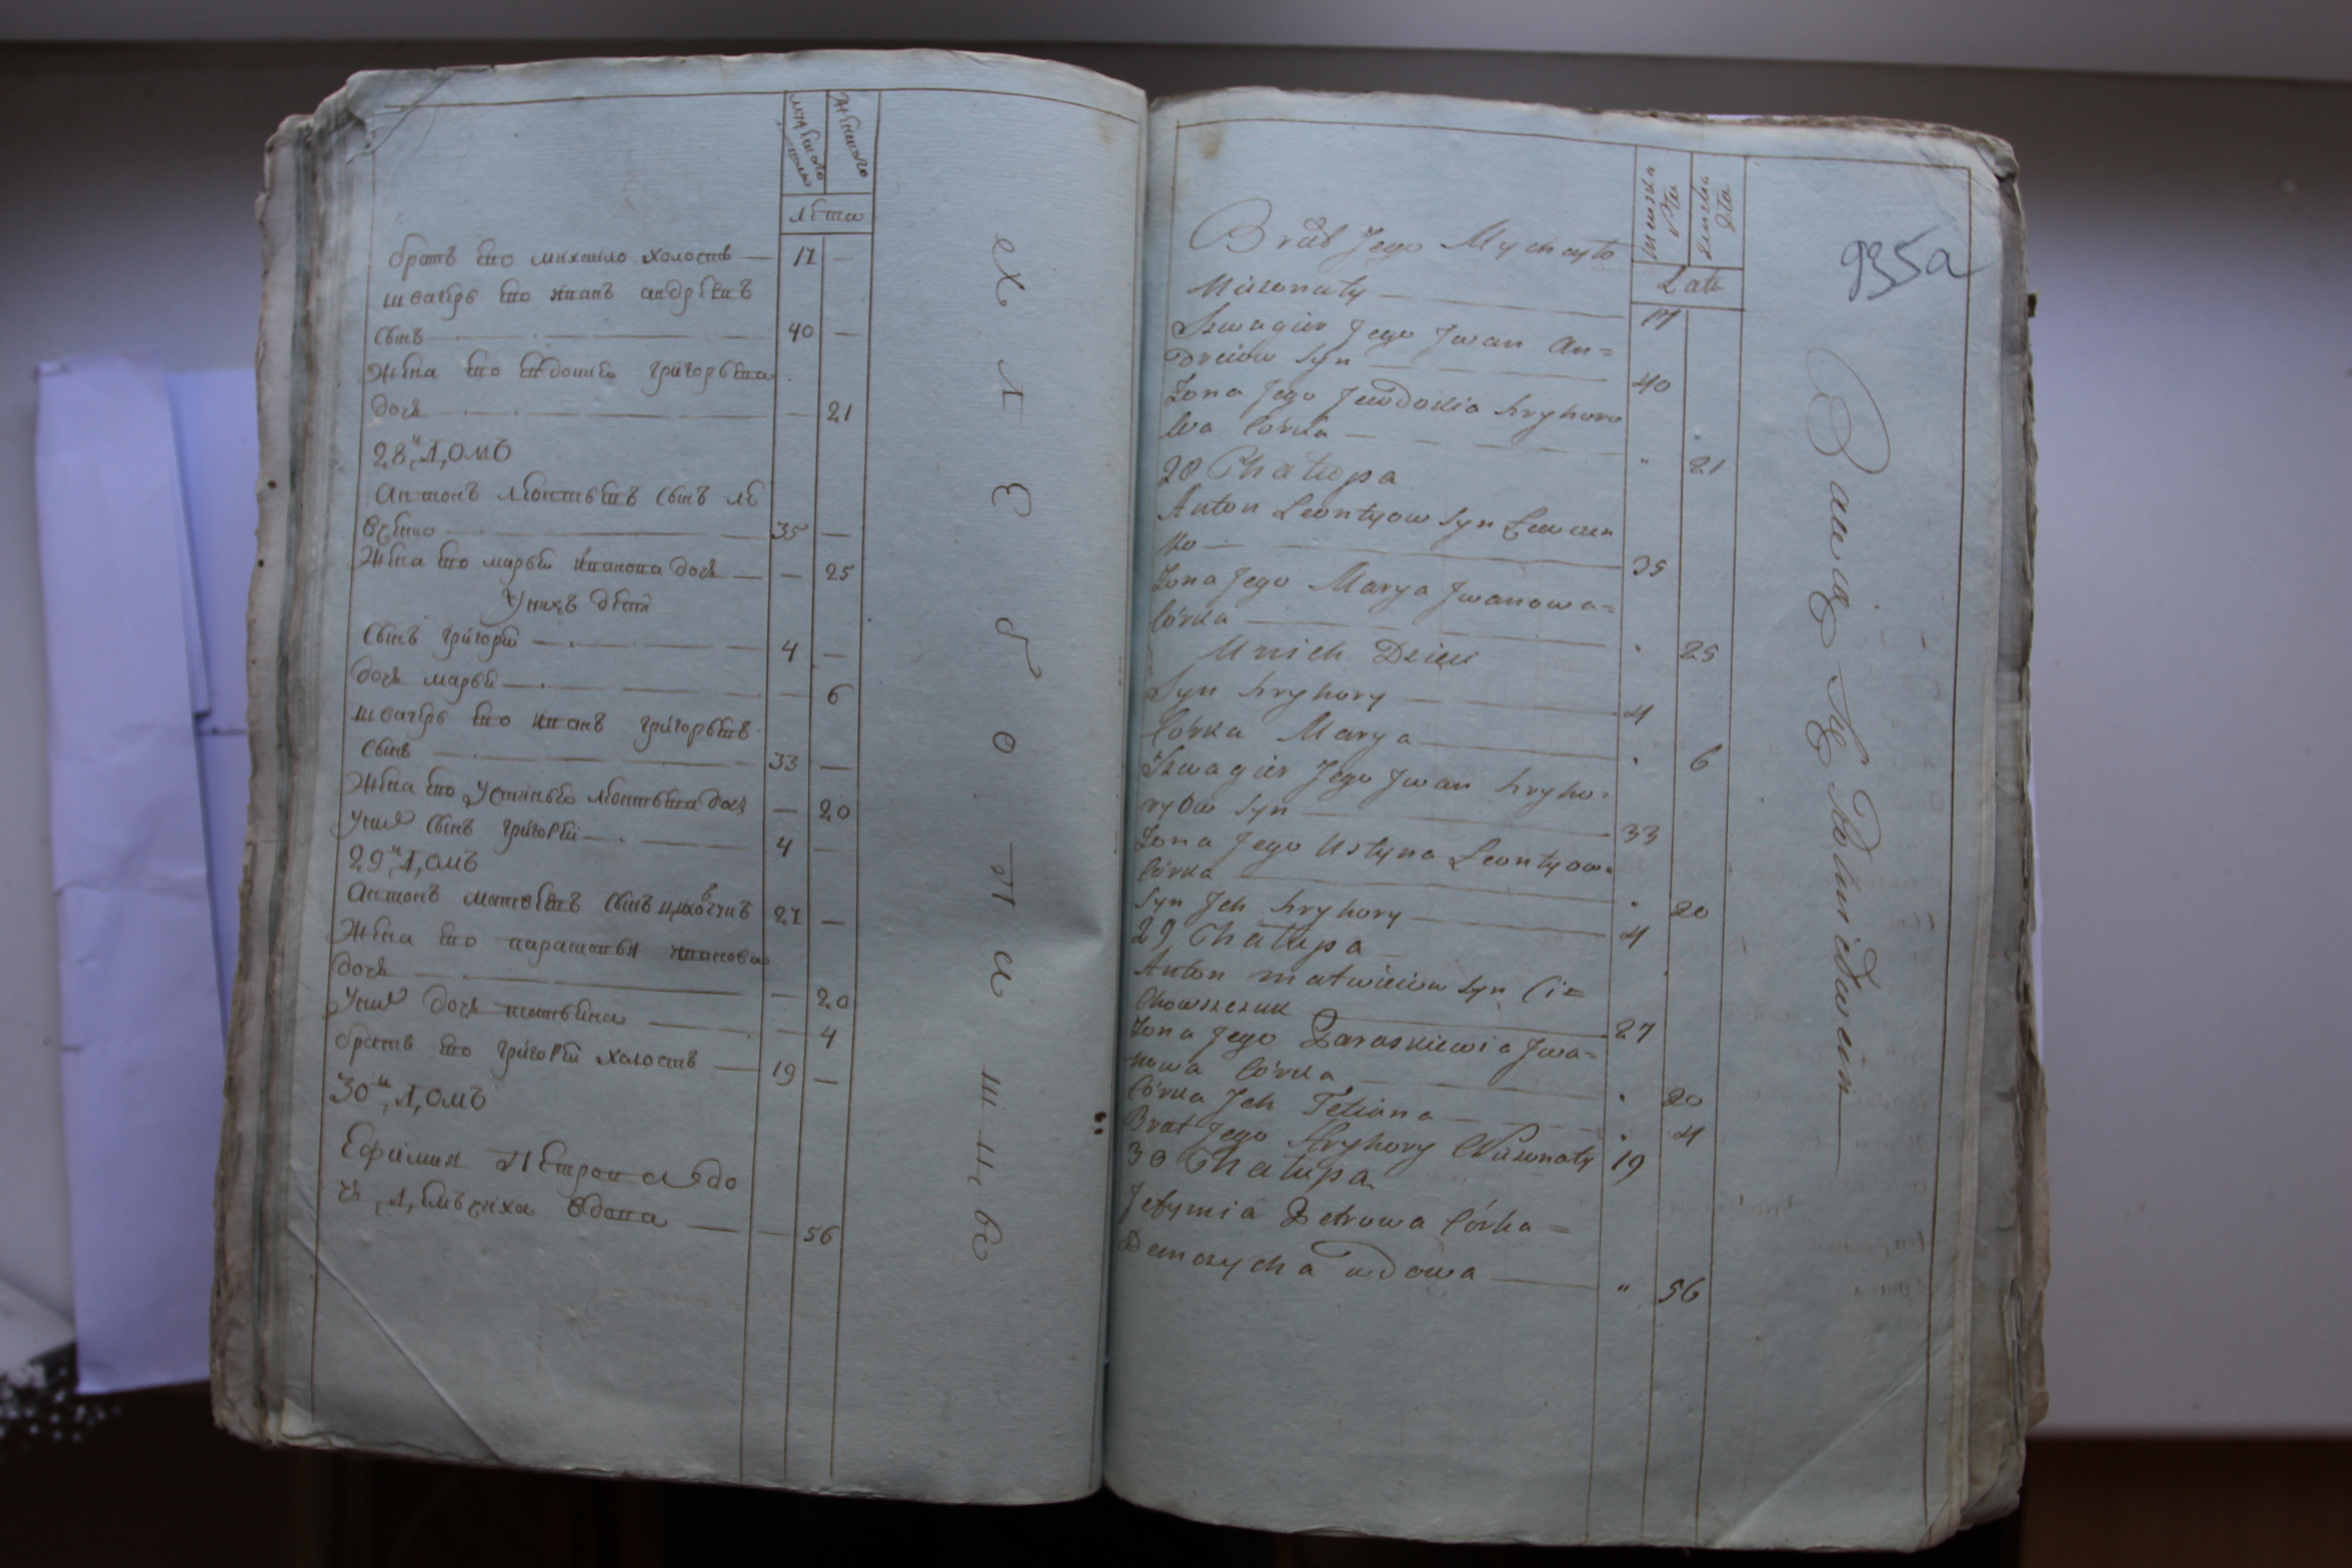 мужеского полу
женского
лета
братъ его михаило холостъ — 17 —
швагеръ его иванъ андреевъ
сынъ — 40 —
Жена его евдокиѣ григорьева
дочь — — 21
28й Домъ
Антонъ леонтьевъ сынъ ле
вченко — 35 —
Жена его марья иванова дочь — — 25
У нихъ дети
Сынъ григорей — 4 —
дочь марья — — 6
швагеръ его иванъ григорьевъ
сынъ — 33 —
Жена его устинья леонтьева дочь — 20
У них сынъ григорей — 4 —
29й Домъ
Антонъ матвеевъ сынъ цихов
Жена его парасковья иванова
дочь — — 20
У них дочь татьяна — — 4
братъ его григорей холостъ — 19 —
30й Домъ
Ефимия Петрова до
чь Демъчиха вдова — — 56
хлебопашцы
męzka Płci
żeńska Płci
Lata
935a
Brat Jego Mychayło
Nieżonaty — 17
Szwagier Jego Jwan An=
dreiow Syn — 40
Żona Jego Jewdokia hryhoro
wa Córka — " 21
28 Chałupa
Anton Leontyow Syn Lewczen
ko — 35
Żona Jego Marya Jwanowa=
Córka — " 25
U nich Dzieci
Syn hryhory — 4
Córka Marya — " 6
Szwagier Jego Jwan hryho=
ryow Syn — 33
Żona Jego Ustyna Leontyow=
Córka — " 20
Syn Jch hryhory — 4
29 Chałupa
Anton matwieiow Syn Ci=
chowszczuk — 27
Żona Jego Paraskiewia Jwa=
nowa Córka — " 20
Córka Jch Tetiana — " 4
Brat Jego Hryhory Nieżonaty 19
30 Chałupa
Jefymia Petrowa Córka =
Demczycha wdowa — " 56